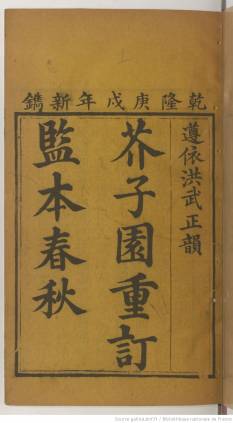 乾隆庚戌年新鐫
遵依洪武正韻
芥子園重訂
監本春秋
Source gallica.bnf.fr / Bibliothèque nationale de France